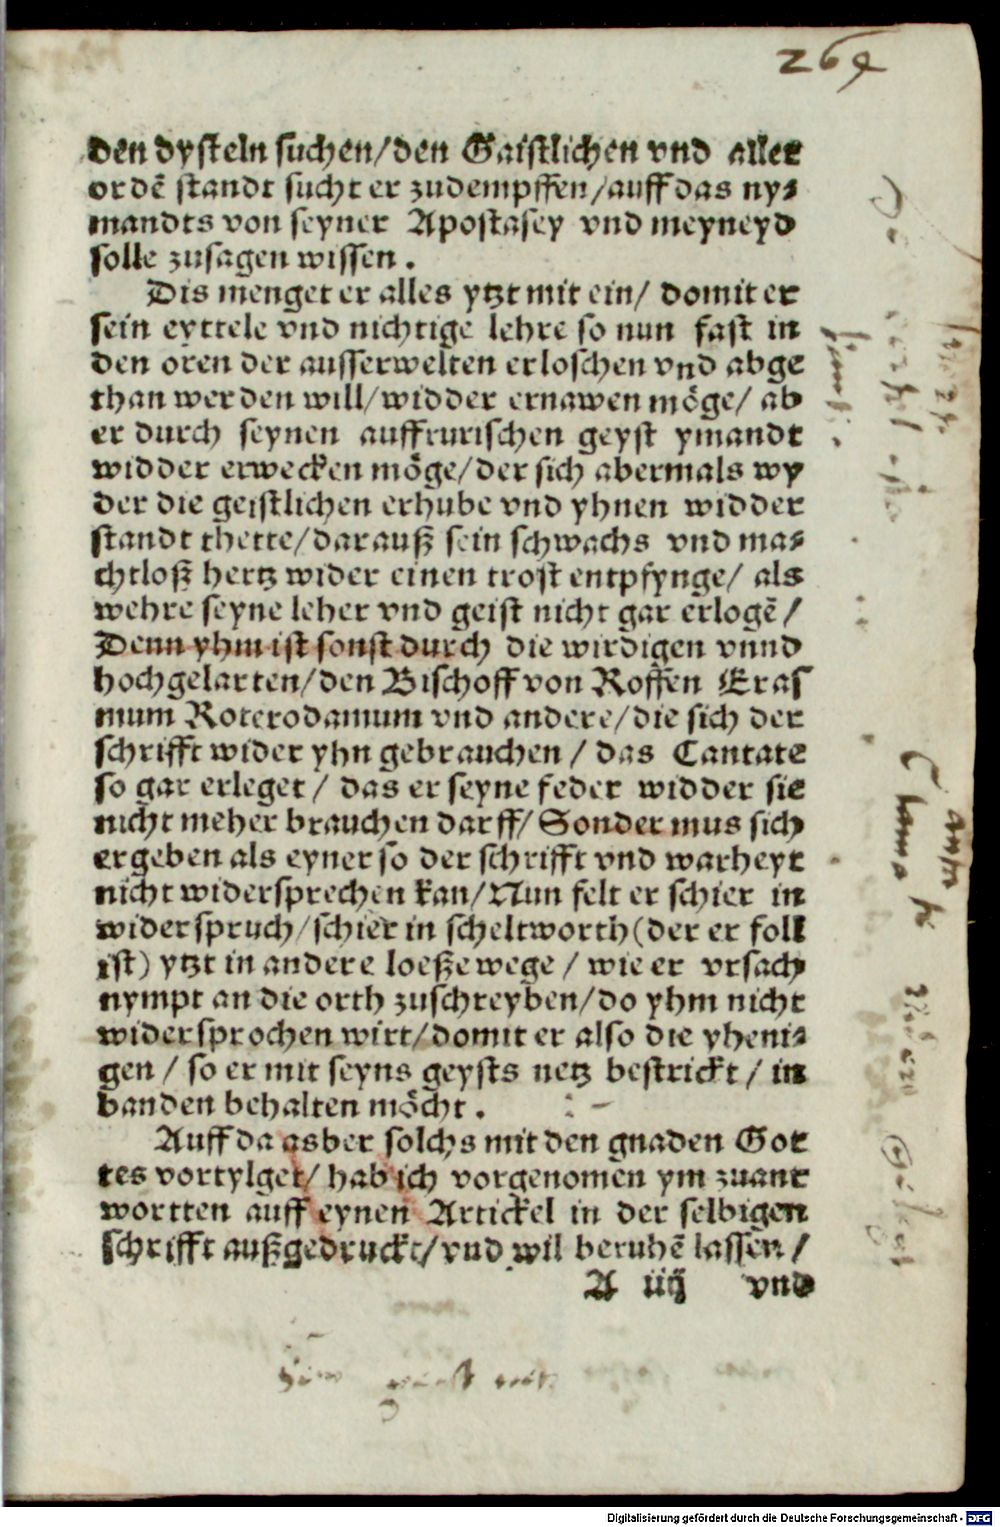 264
den dysteln suchen/den Gaistlichen vnd aller
ordē standt sucht er zudempffen/auff das ny⸗
mandts von seyner Apostasey vnd meyneyd
solle zusagen wissen.
Dis menget er alles ytzt mit ein/ domit er
sein eyttele vnd nichtige lehre so nun fast in
den oren der ausserwelten erloschen vnd abge
than werden will/widder ernawen möge/ ab
er durch seynen auffrurischen geyst ymandt
widder erwecken möge/der sich abermals wy
der die geistlichen erhube vnd yhnen widder
standt thette/darauß sein schwachs vnd ma⸗
chtloß hertz wider einen trost entpfynge/ als
wehre seyne leher vnd geist nicht gar erlogē/
Denn yhm ist sonst durch die wirdigen vnnd
hochgelarten/den Bischoff von Roffen Eras
mum Roterodamum vnd andere/die sich der
schrifft wider yhn gebrauchen/ das Cantate
so gar erleget/ das er seyne feder widder sie
nicht meher brauchen darff/Sonder mus sich
ergeben als eyner so der schrifft vnd warheyt
nicht widersprechen kan/Nun felt er schier in
widerspruch/schier in scheltworth(der er foll
ist) ytzt in andere loeße wege/ wie er vrsach
nympt an die orth zuschreyben/do yhm nicht
widersprochen wirt/domit er also die yheni⸗
gen/ so er mit seyns geysts netz bestrickt/ in
banden behalten möcht.
Auff da asber solchs mit den gnaden Got
tes vortylget/ hab ich vorgenomen ym zuant
wortten auff eynen Artickel in der selbigen
schrifft außgedruckt/vnd wil beruhē lassen/
A iiij vnd
Digitalisierung gefördert durch die Deutsche Forschungsgemeinschaft - DFG